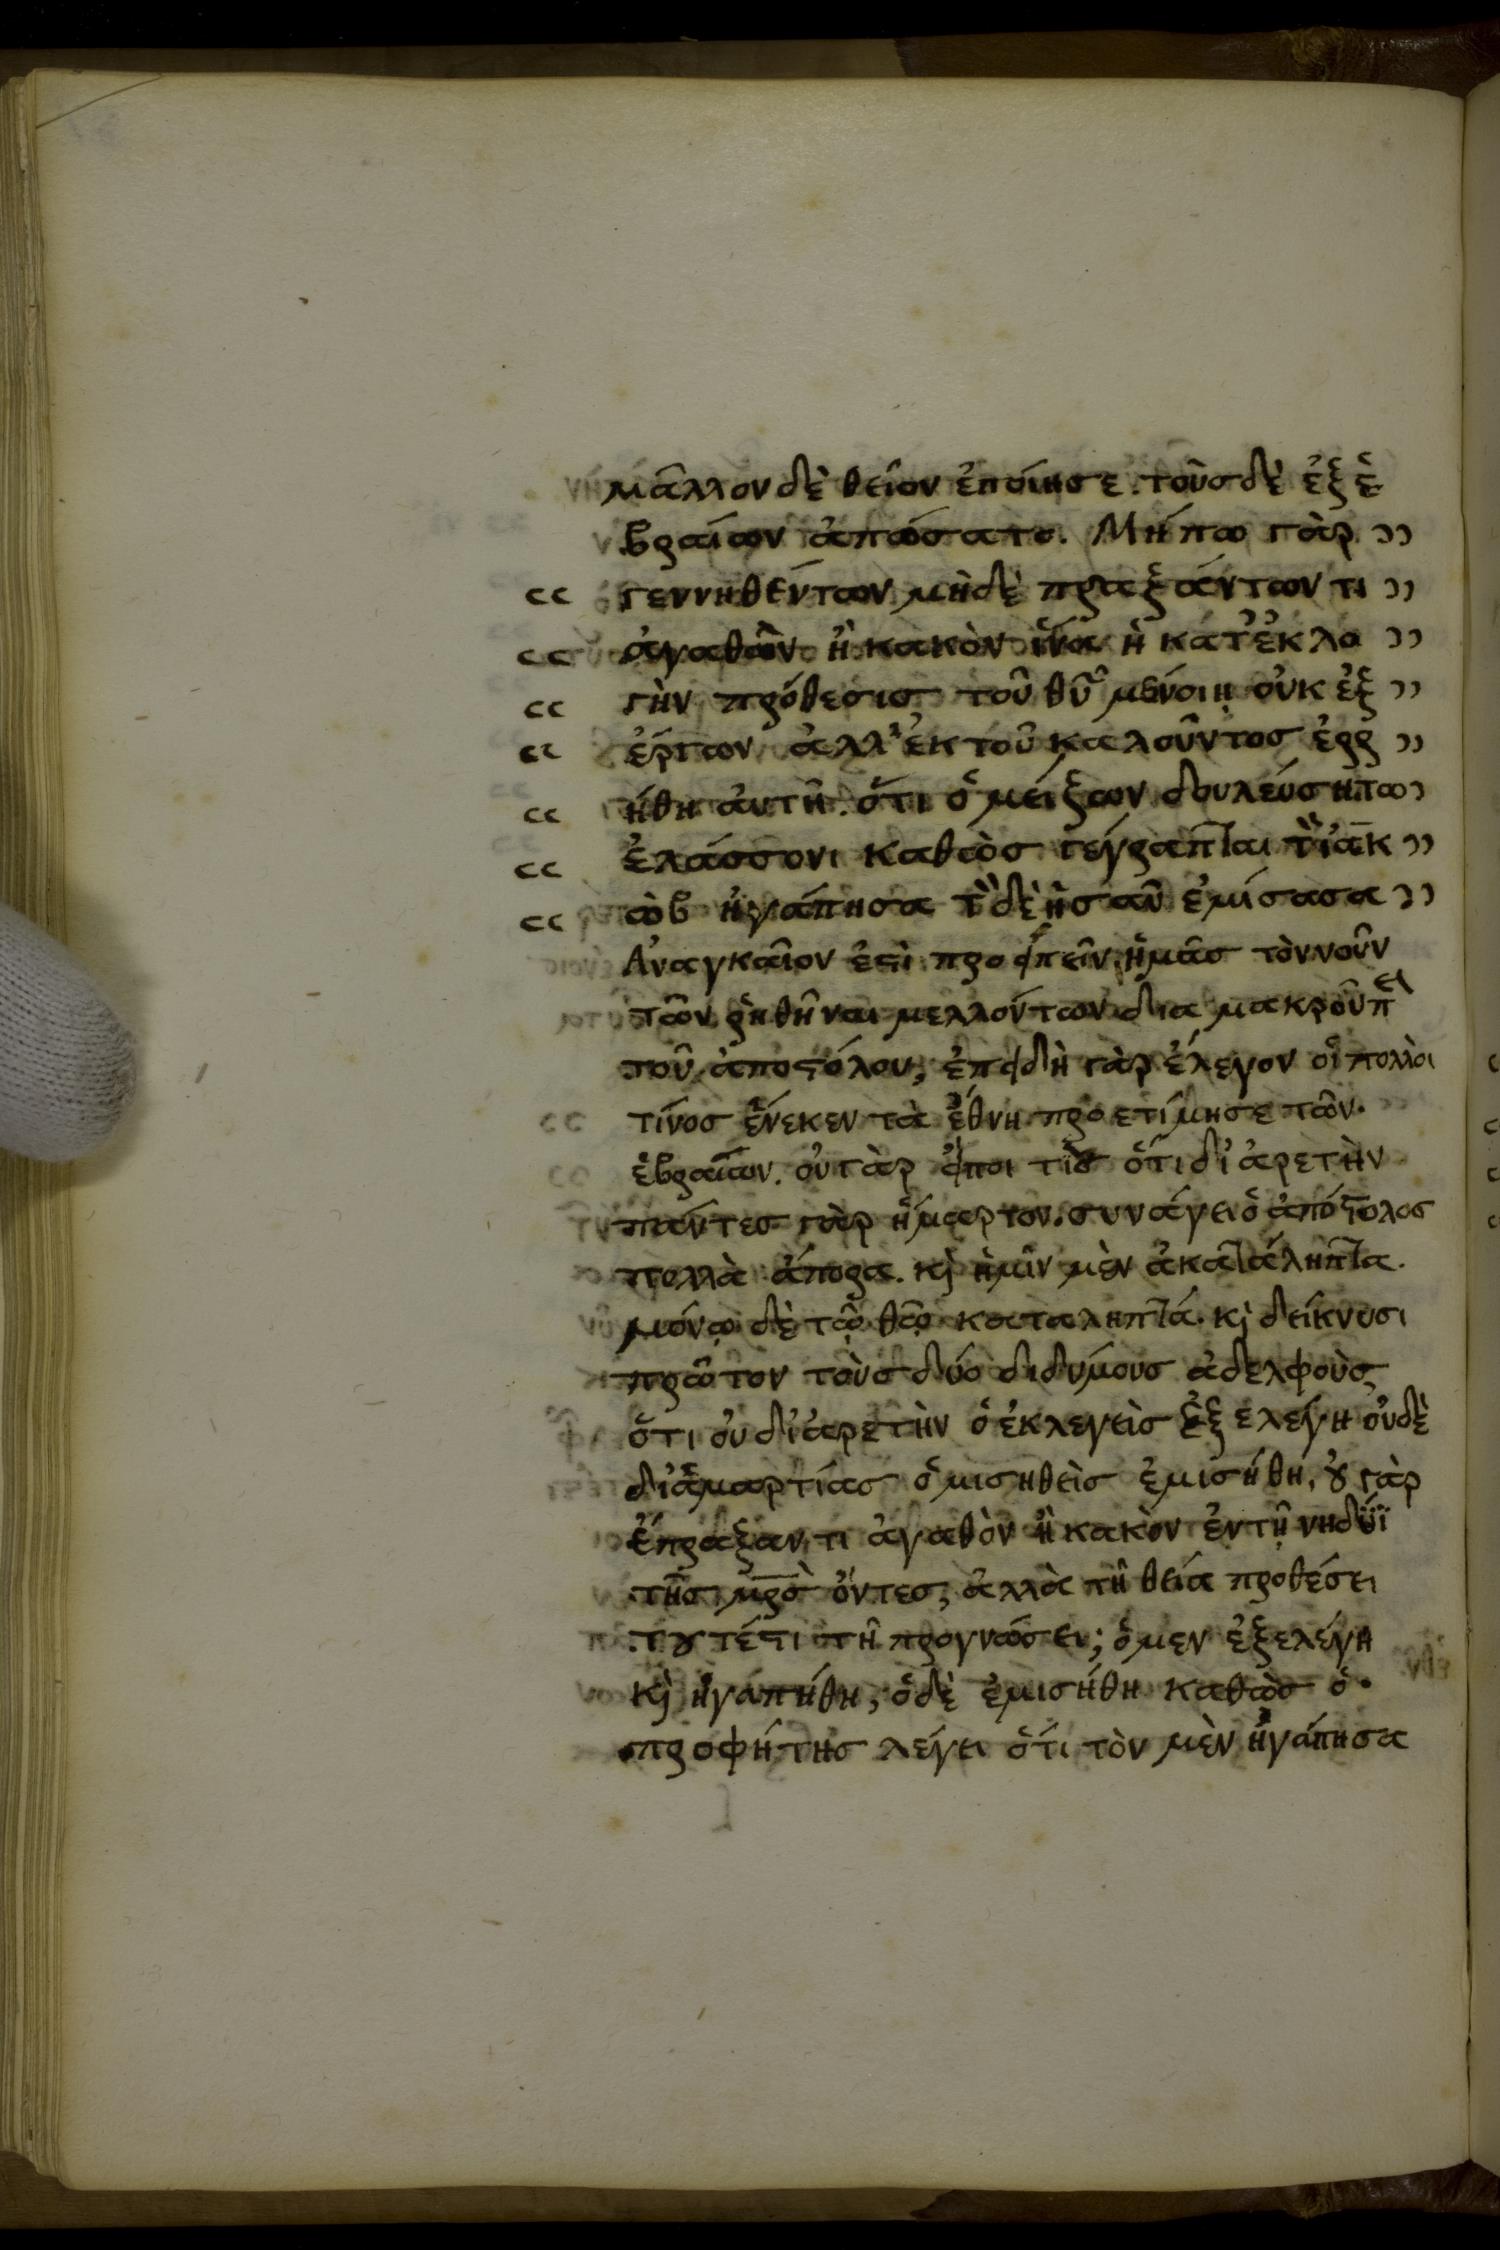 μᾶλλον δὲ θεῖον ἐποίησε. τοὺς δὲ ἐξ ἑ
βραίων ἀπώσατο. Μήπω γὰρ ”
“ γεννηθέντων μηδὲ πραξάντων τι ”
“ ἀγαθὸν ἢ κακὸν ἵνα ἡ κατ' ἐκλο ”
“ γὴν πρόθεσις τοῦ θυ μένοι η οὐκ ἐξ ”
“ ἔργων ἀλλ' ἐκ τοῦ καλοῦντος ἐρρ ”
“ ήθη αὐτῇ. ὅτι ὁ μείζων δουλεύσῃ τω ”
“ ἐλάσσονι καθὼς γέγραπται τὸν ἰακ ”
“ ὼβ ἠγάπησα τὸν δὲ ἠσαῦ ἐμίσασα ”
Ἀναγκαῖον ἐστὶ προειπεῖν ἡμᾶς τὸν νοῦν
τῶν ῥηθῆναι μελλόντων δια μακροῦ π
τοῦ ἀποστόλου, ἐπειδὴ γὰρ ἔλεγον οἱ πολλοὶ
τίνος ἕνεκεν τὰ ἔθνη προετίμησε τῶν
ἑβραίων. οὐ γὰρ εἴποι τὶς ὅτι δι' ἀρετὴν
πάντες γὰρ ἥμαρτον. συνάγει ὁ ἀπόστολος
πολλὰ ἄπορα. κὶ ἡμῖν μὲν ἀκατάληπτα.
μόνῳ δὲ τῷ θῷ καταληπτά. κὶ δείκνυσι
πρῶτον τοὺς δύο διδύμους ἀδελφοὺς
ὅτι οὐ δι' ἀρετὴν ὁ ἐκλεγεὶς ἐξελέγη οὐδὲ
δι' ἁμαρτίας ὁ μισηθεὶς ἐμισήθη, ȣ γὰρ
ἔπραξαν τι ἀγαθὸν ἢ κακὸν ἐν τῇ νηδύϊ
τῆς μρσ ὄντες, ἀλλὰ τῆ θεία προθέσει
τȣτέστι τῆ προγνώσει; ὁ μεν ἐξελέγη
κὶ ἠγαπήθη, ὁ δὲ ἐμισήθη καθὼς ὁ
προφήτης λέγει ὅτι τὸν μὲν ἠγάπησα